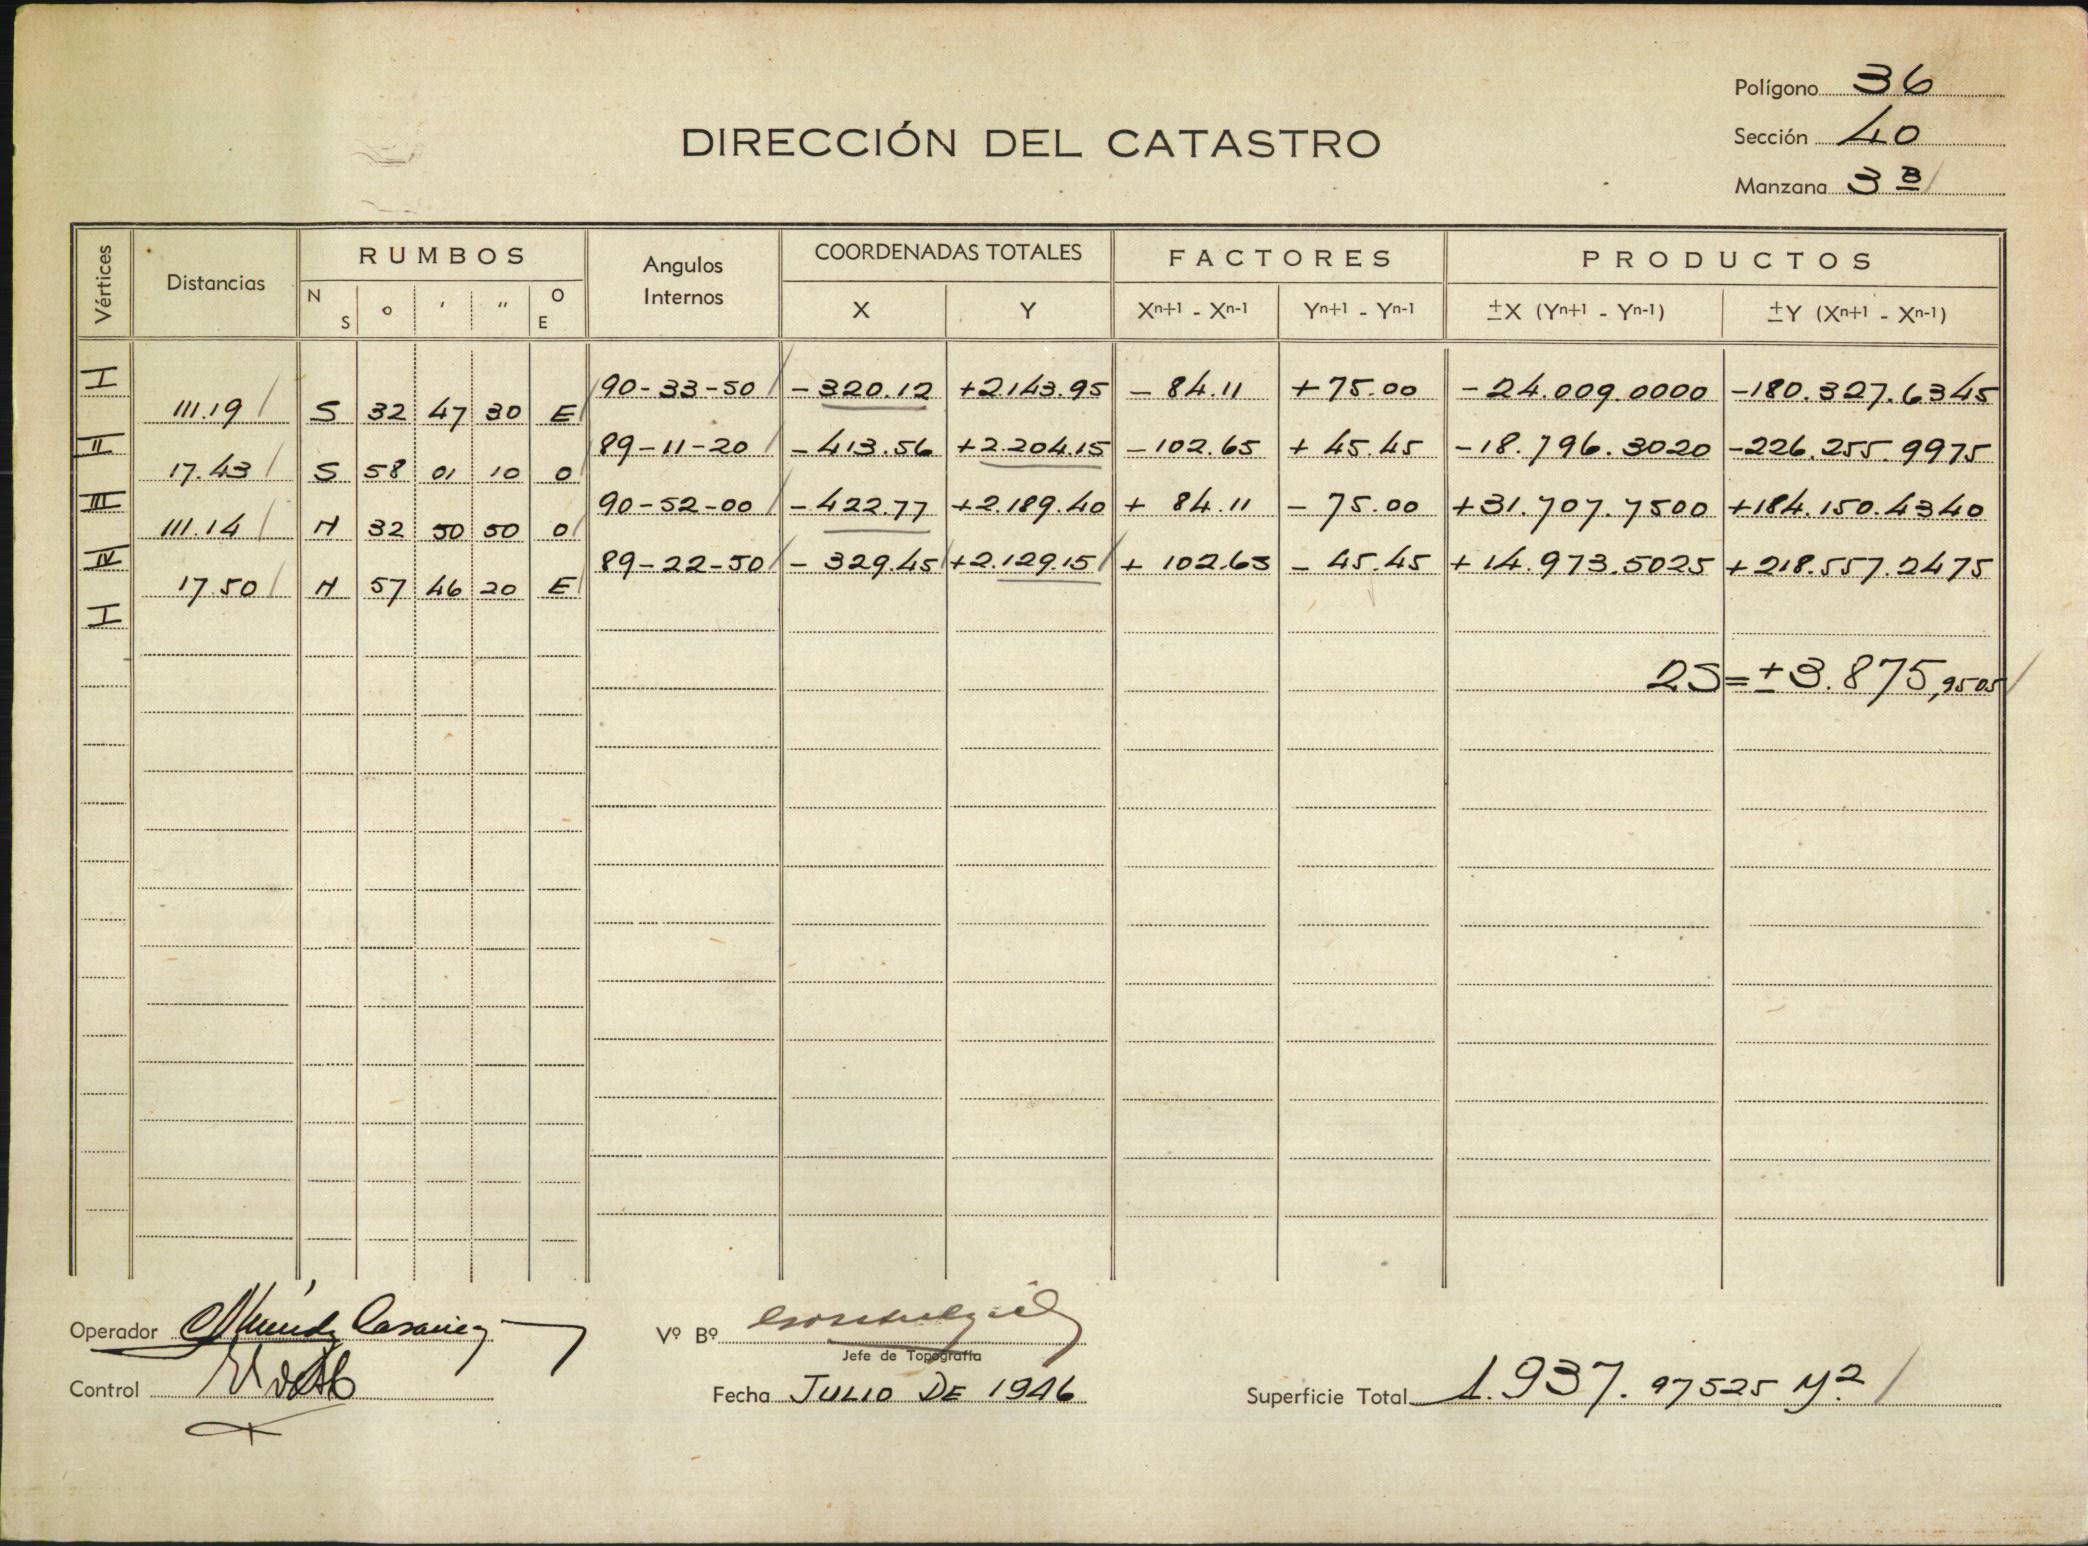 Polígono 36
DIRECCIÓN DEL CATASTRO
Sección 40
Manzana 3 B
Vértices Distancias RUMBOS Angulos Internos COORDENADAS TOTALES FACTORES PRODUCTOS
N S ° ' " O E X Y Xn+1 - Xn-1 Yn+1 - Yn-1 ±X (Yn+1 - Yn-1) ±Y (Xn+1 - Xn-1)
I 90-33-50 -320.12 +2143.95 -84.11 +75.00 -24.009.0000 -180.327.6345
111.19 S 32 47 30 E
II 89-11-20 -413.56 +2.204.15 -102.65 +45.45 -18.796.3020 -226.255.9975
17.43 S 58 01 10 O
III 90-52-00 -422.77 +2.189.40 +84.11 -75.00 +31.707.7500 +184.150.4340
111.14 N 32 50 50 O
IV 89-22-50 -329.45 +2.129.15 +102.65 -45.45 +14.973.5025 +218.557.2475
17.50 N 57 46 20 E
I
2S=±3.875,9505
Operador
Vº Bº
Jefe de Topografía
Control
Fecha JULIO DE 1946
Superficie Total 1.937.97525 M²